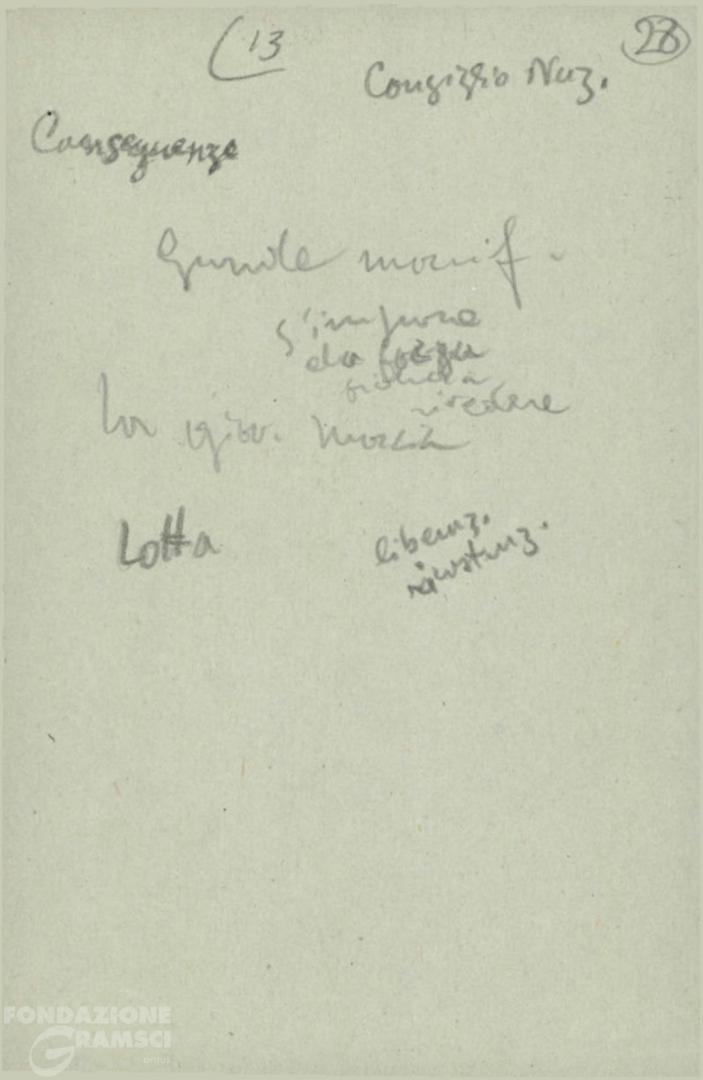 13
28
Consiglio Naz.
Conseguenze
Grande manif.
s'impone
da forza
fiducia
rivedere
la giov.
Lotta
liberaz.
ricostruz.
FONDAZIONE
GRAMSCI
onlus